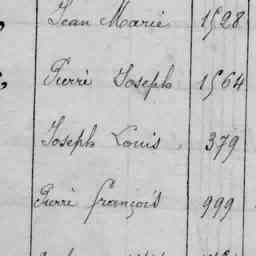 Jean Marie 1528
Pierre Joseph 1564
Joseph Louis 379
Pierre françois 999